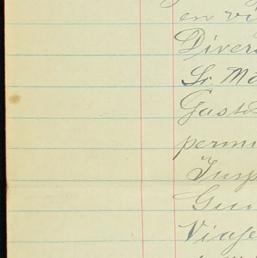 en vi
Divers
Sr. Ma
Gasto
permi
Insp
Viaje